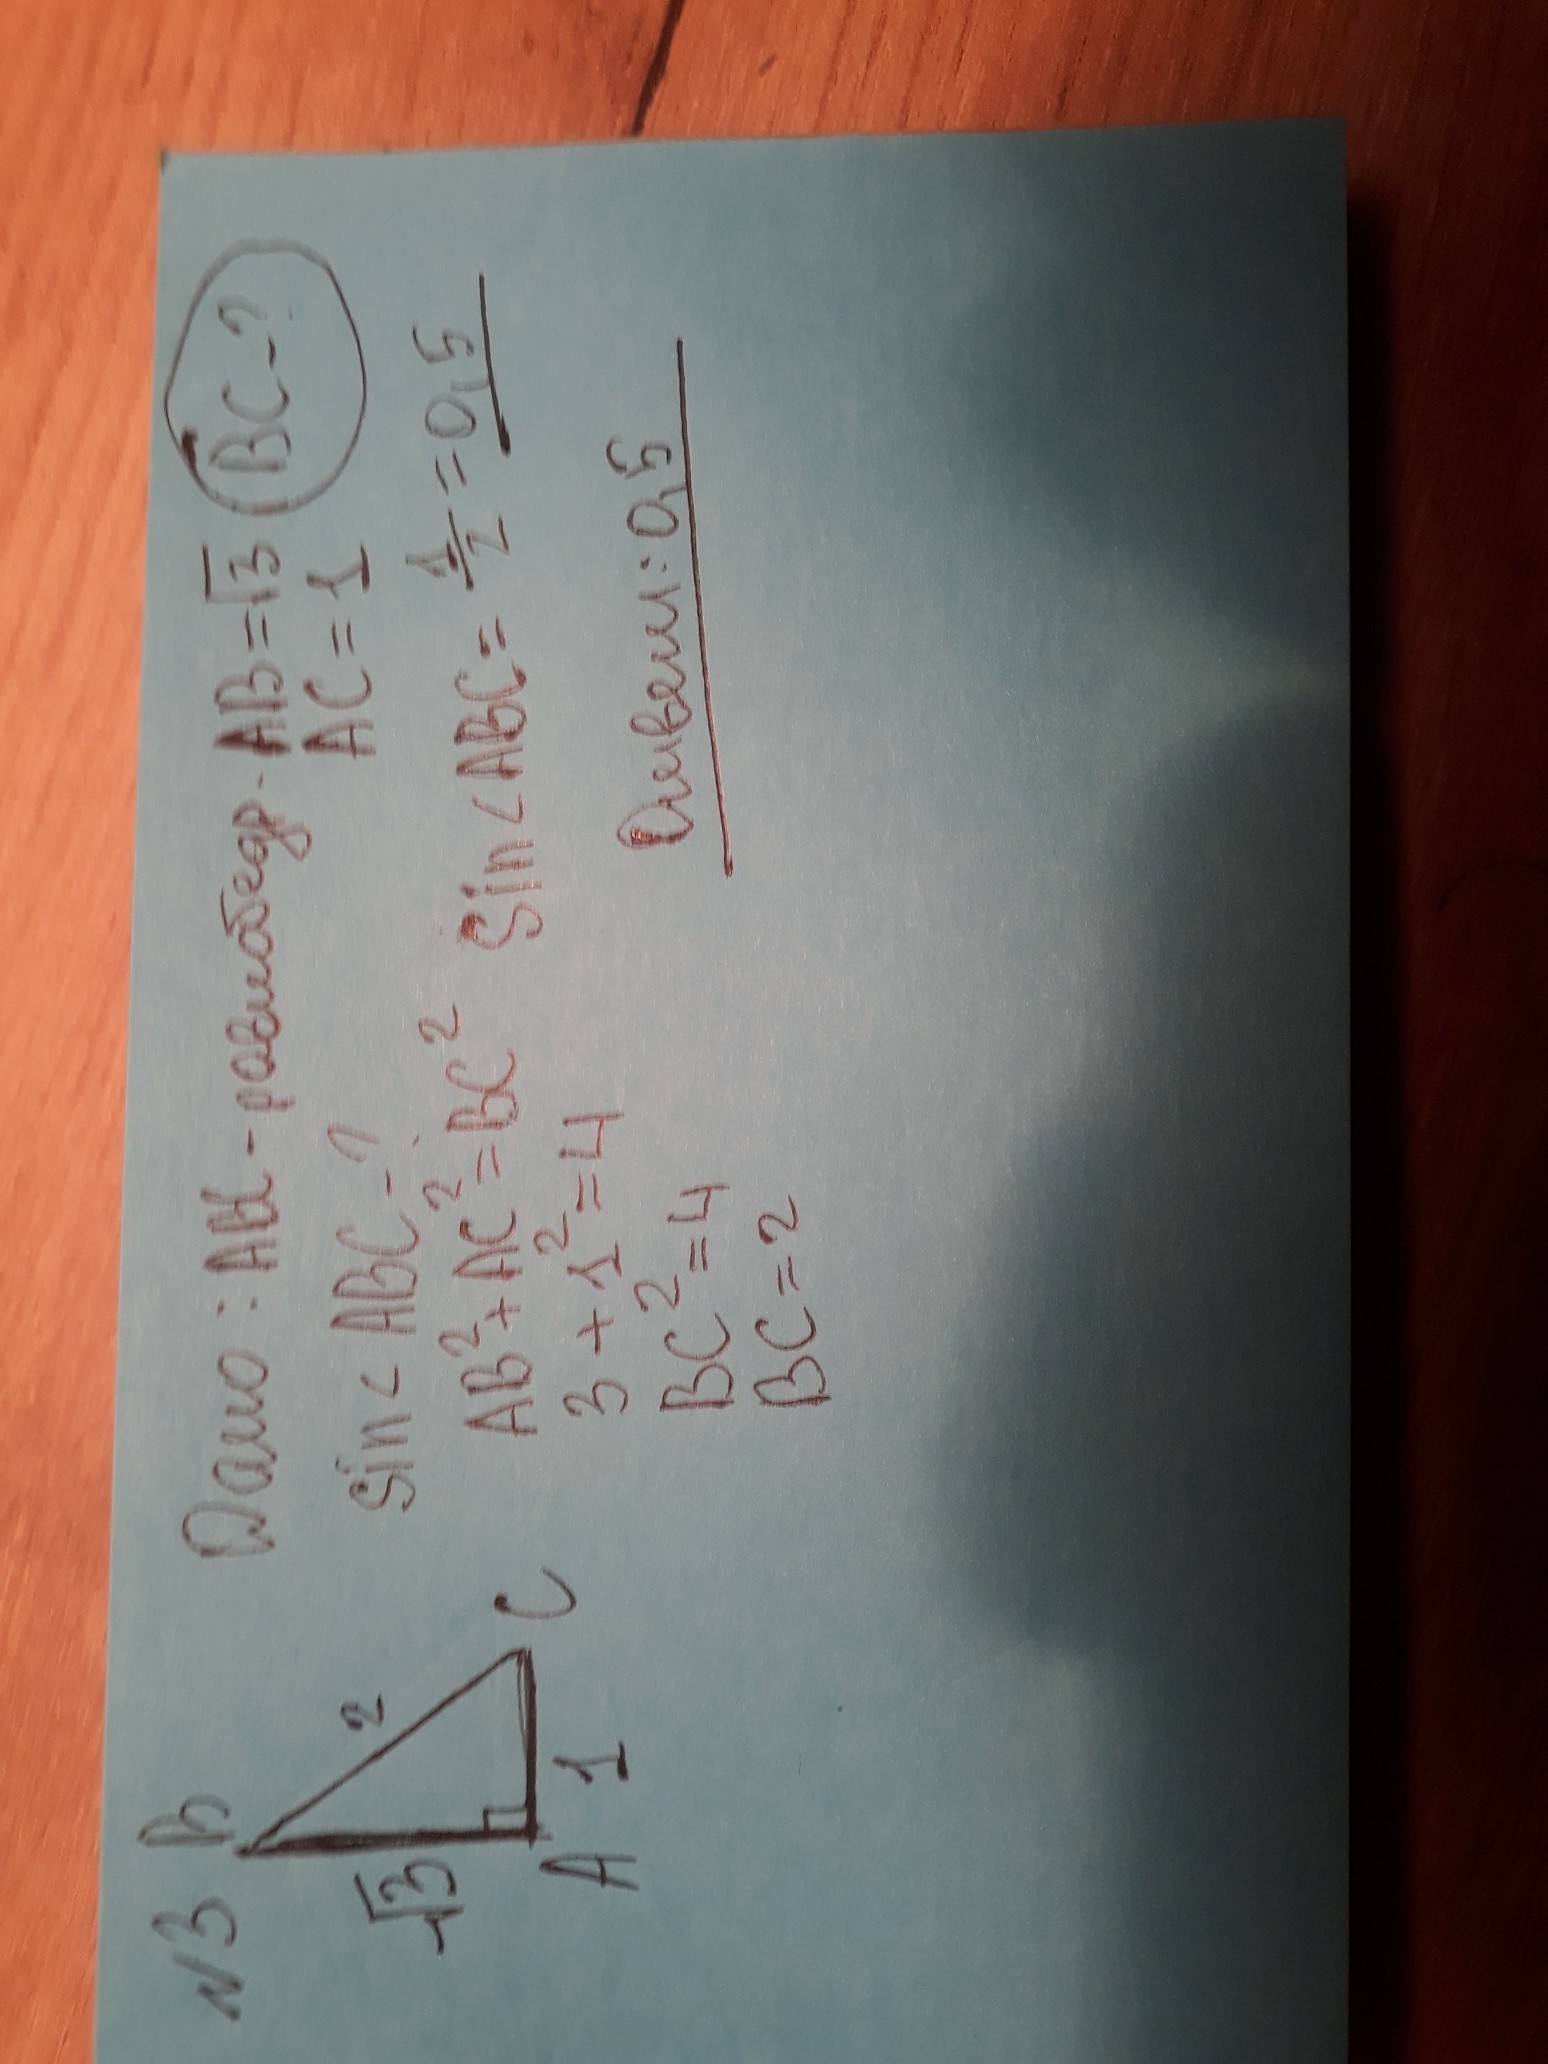 №3
B
√3
2
A
1
C
Дано: ABC - равнобедр. AB=√3 BC-?
AC=1
sin<ABC-?
AB²+AC²=BC²
3+1²=4
BC²=4
BC=2
sin<ABC=1/2=0,5
Ответ: 0,5